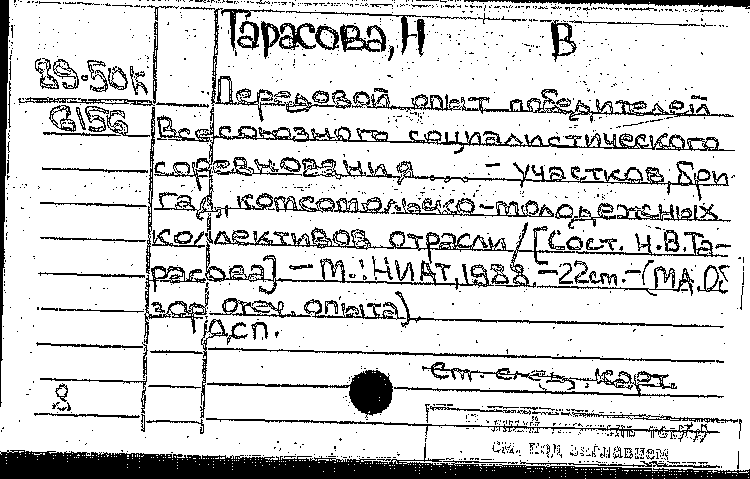 Тарасова, Н В
89-50к
Передовой опыт победителей
Всесоюзного социалистического
соревнования... - участков, бри
гад, комсомольско-молодежных
коллективов отрасли / [Сост. Н.В.Та-
расова] - М.: НИАТ, 1988. - 22см. - (МА. Об
зор отеч. опыта).
ДСП.
См. след. карт.
8
см. под заглавием